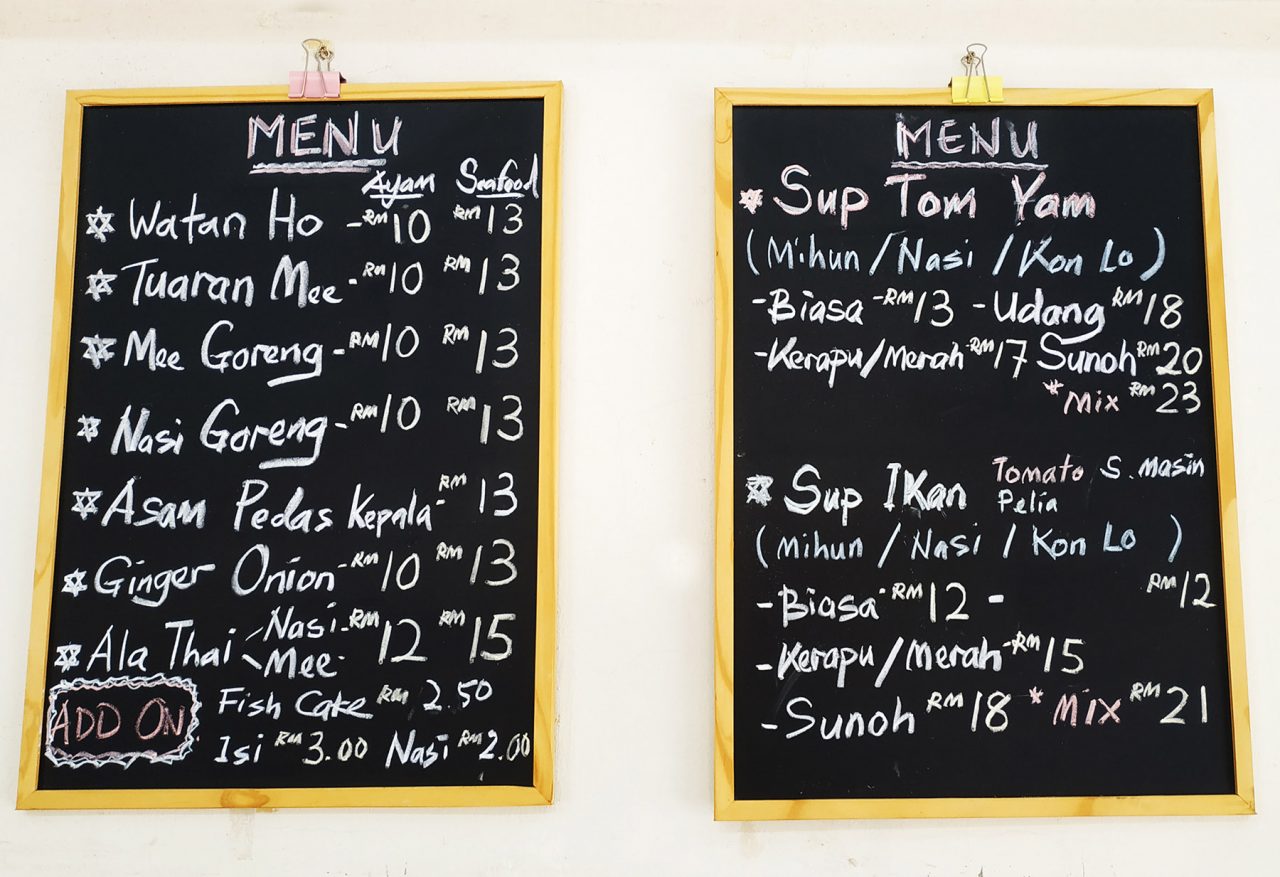 MENU
Ayam Seafood
Watan Ho - RM 10 RM 13
Tuaran Mee - RM 10 RM 13
Mee Goreng - RM 10 RM 13
Nasi Goreng - RM 10 RM 13
Asam Pedas Kepala - RM 13
Ginger Onion - RM 10 RM 13
Ala Thai Nasi - RM 12 RM 15
Mee -
ADD ON Fish Cake RM 2.50
Isi RM 3.00 Nasi RM 2.00
MENU
Sup Tom Yam
(Mihun / Nasi / Kon Lo)
- Biasa - RM 13 - Udang RM 18
- Kerapu/Merah - RM 17 Sunoh RM 20
*Mix RM 23
Sup Ikan Tomato S. Masin
Pelia
(Mihun / Nasi / Kon Lo)
- Biasa - RM 12 - RM 12
- Kerapu/Merah - RM 15
- Sunoh RM 18 *Mix RM 21